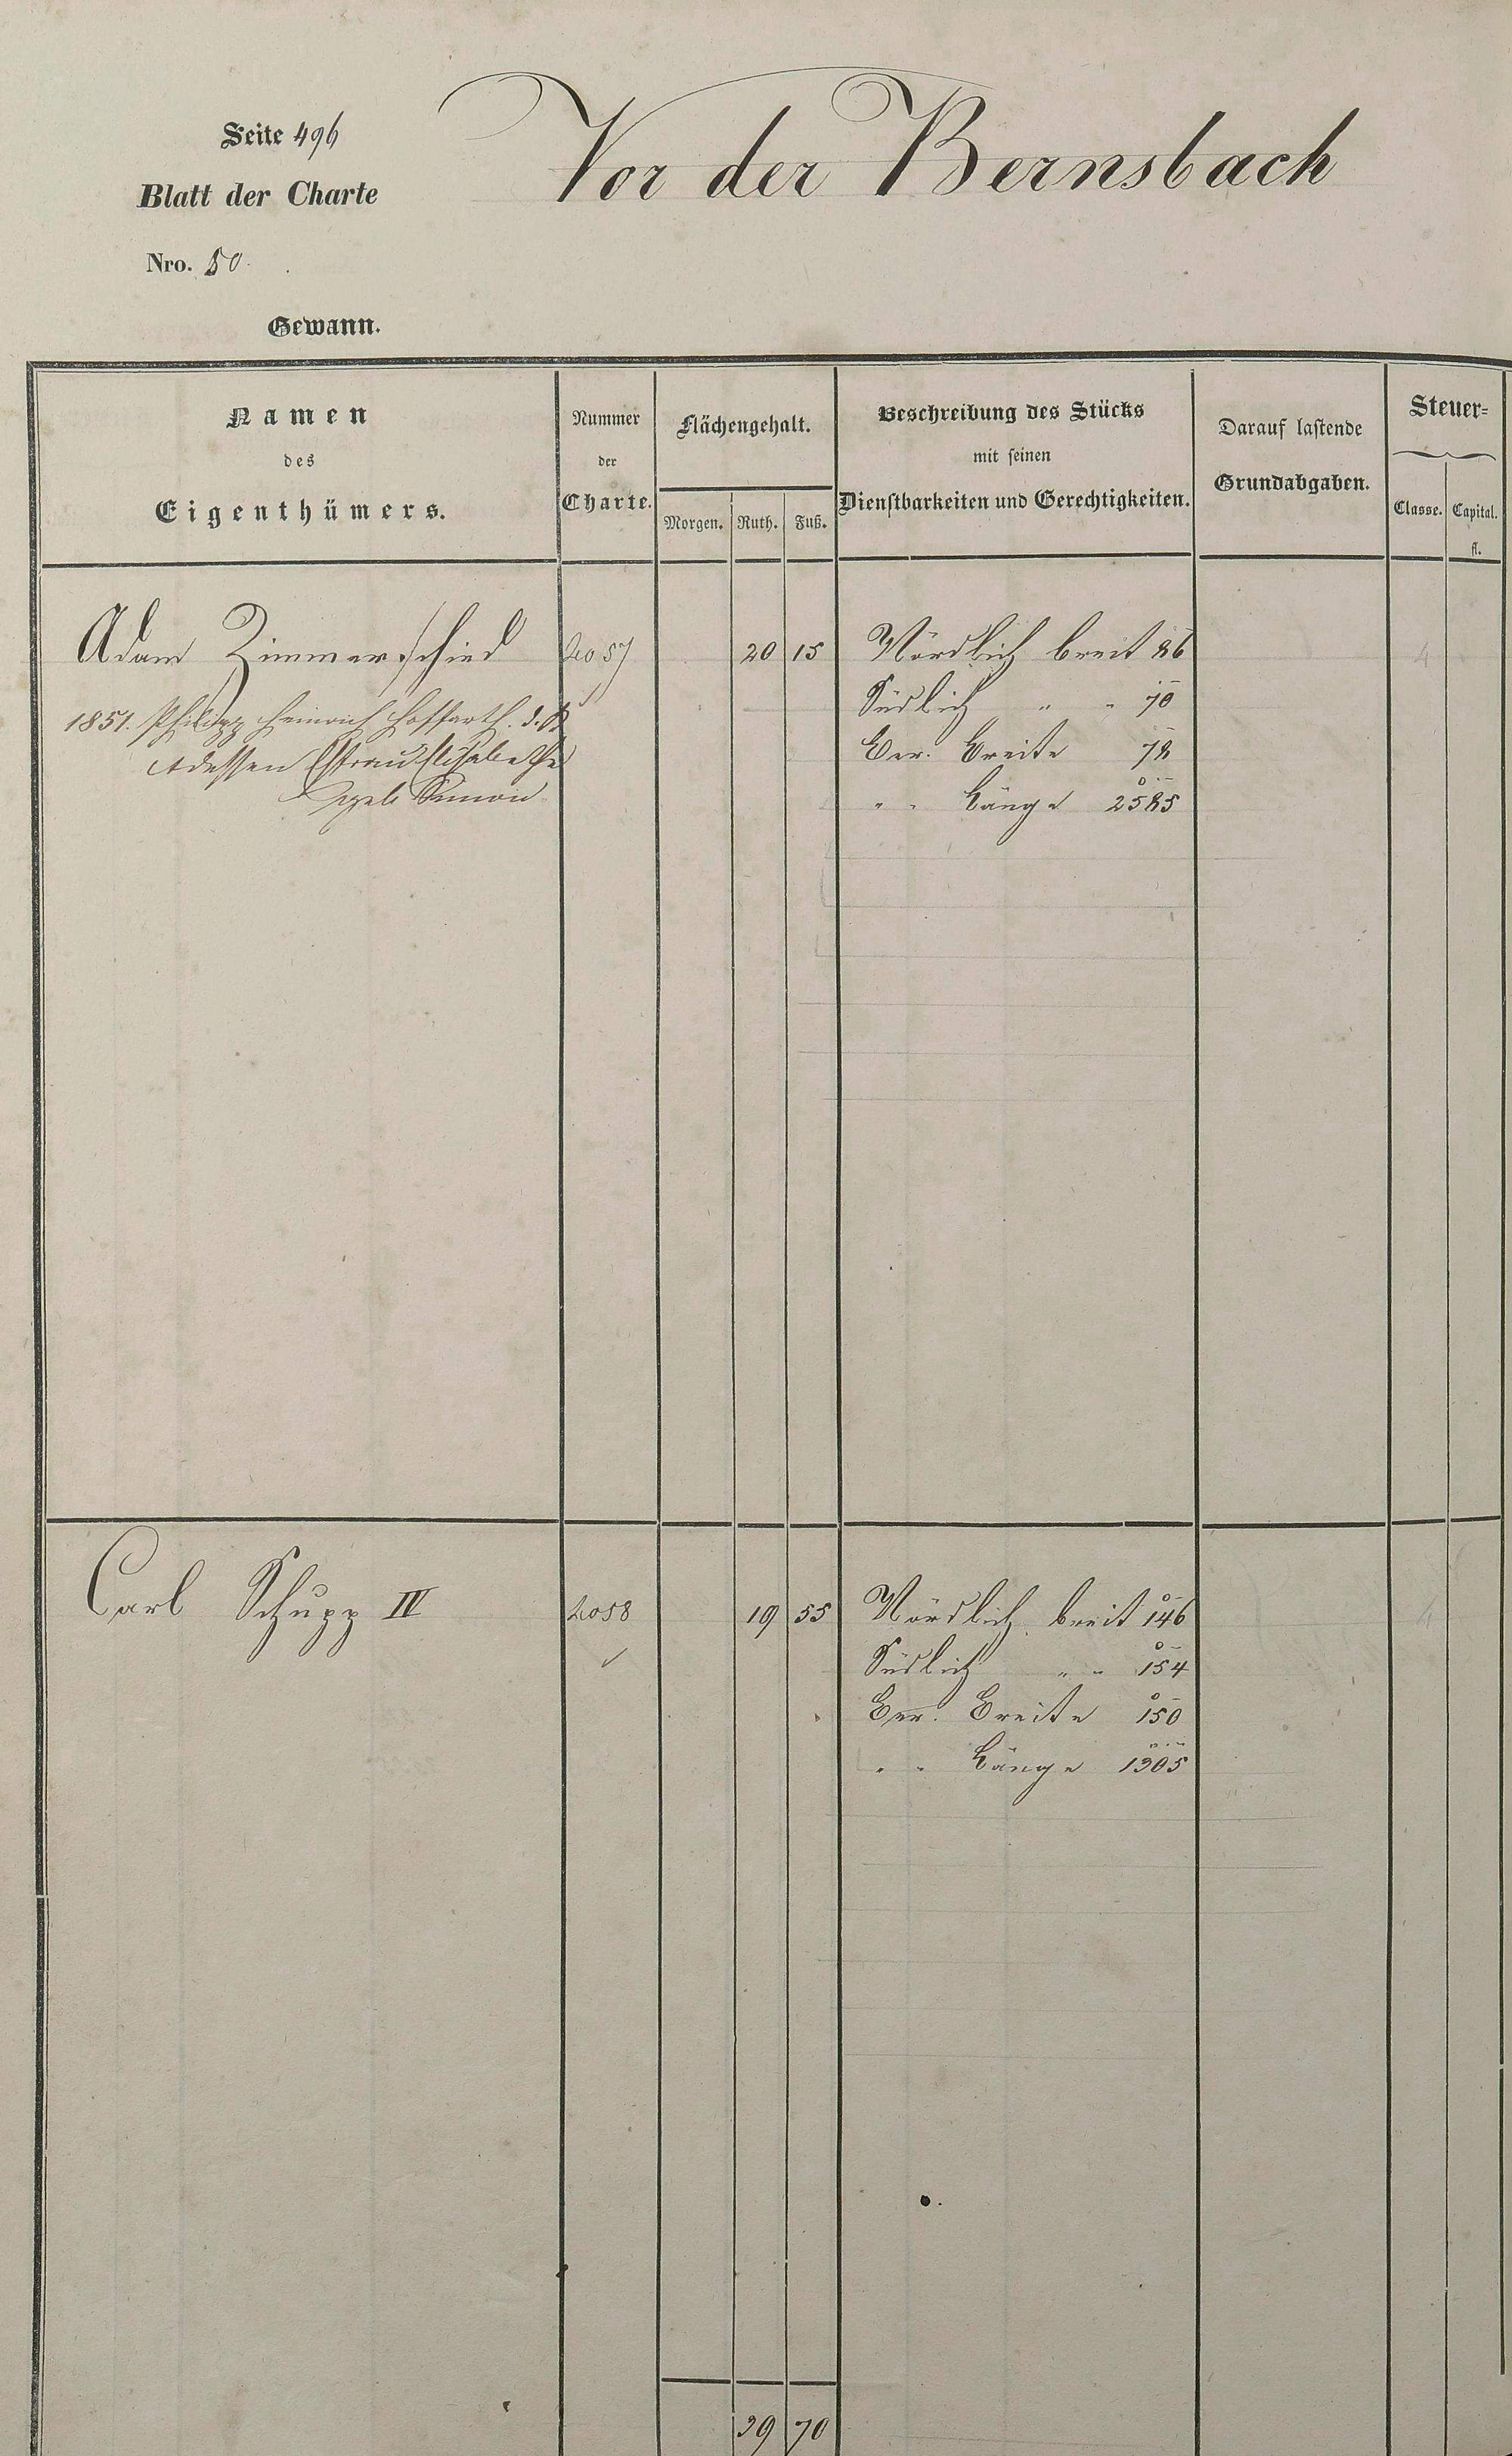 Seite 496
Vor der Bernsbach
Blatt der Charte
Nro. 50.
Gewann.
Namen
des
Eigenthümers.
Nummer
der
Charte.
Flächengehalt.
Morgen. Ruth. Fuß.
Beschreibung des Stücks
mit seinen
Dienstbarkeiten und Gerechtigkeiten.
Darauf lastende
Grundabgaben.
Steuer=
Classe. Capital.
fl.
Adam Zimmerschied 2057 20 15 Nördlich breit 86
Südlich " " 70
1851. Philipp Heinrich Hoffarth
Ber. Breite 78
dessen Ehefrau Elisabethe
" " Länge 2585
Simon
Carl Schupp IV 2058 19 55 Nördlich breit 146
Südlich " " 154
Ber. Breite 150
" " Länge 1305
39 70